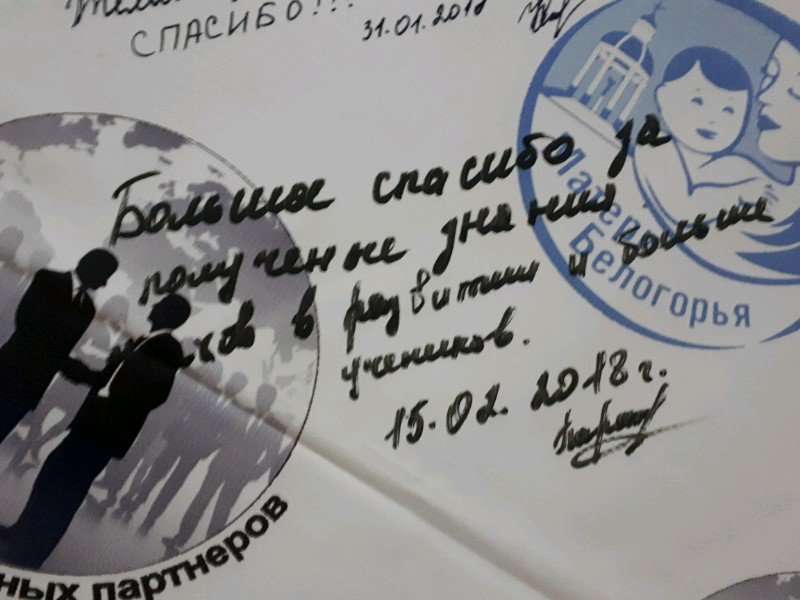 СПАСИБО!!!
31.01.2018
Большое спасибо за
полученные знания
в развитии и больше
учеников.
15.02.2018 г.
Матери
Белогорья
ных партнеров